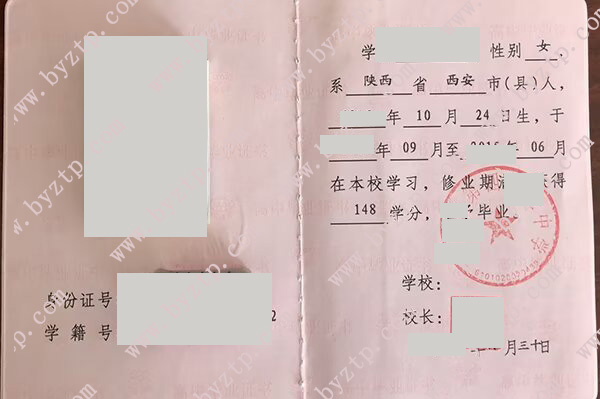 身份证号
学籍号 2
学 性别 女，
系 陕西 省 西安 市(县)人，
年 10 月 24 日生，于
年 09 月至 年 06 月
在本校学习，修业期 得
148 学分， 毕业。
中学
学校：
校长：
月三十日
www.byztp.com